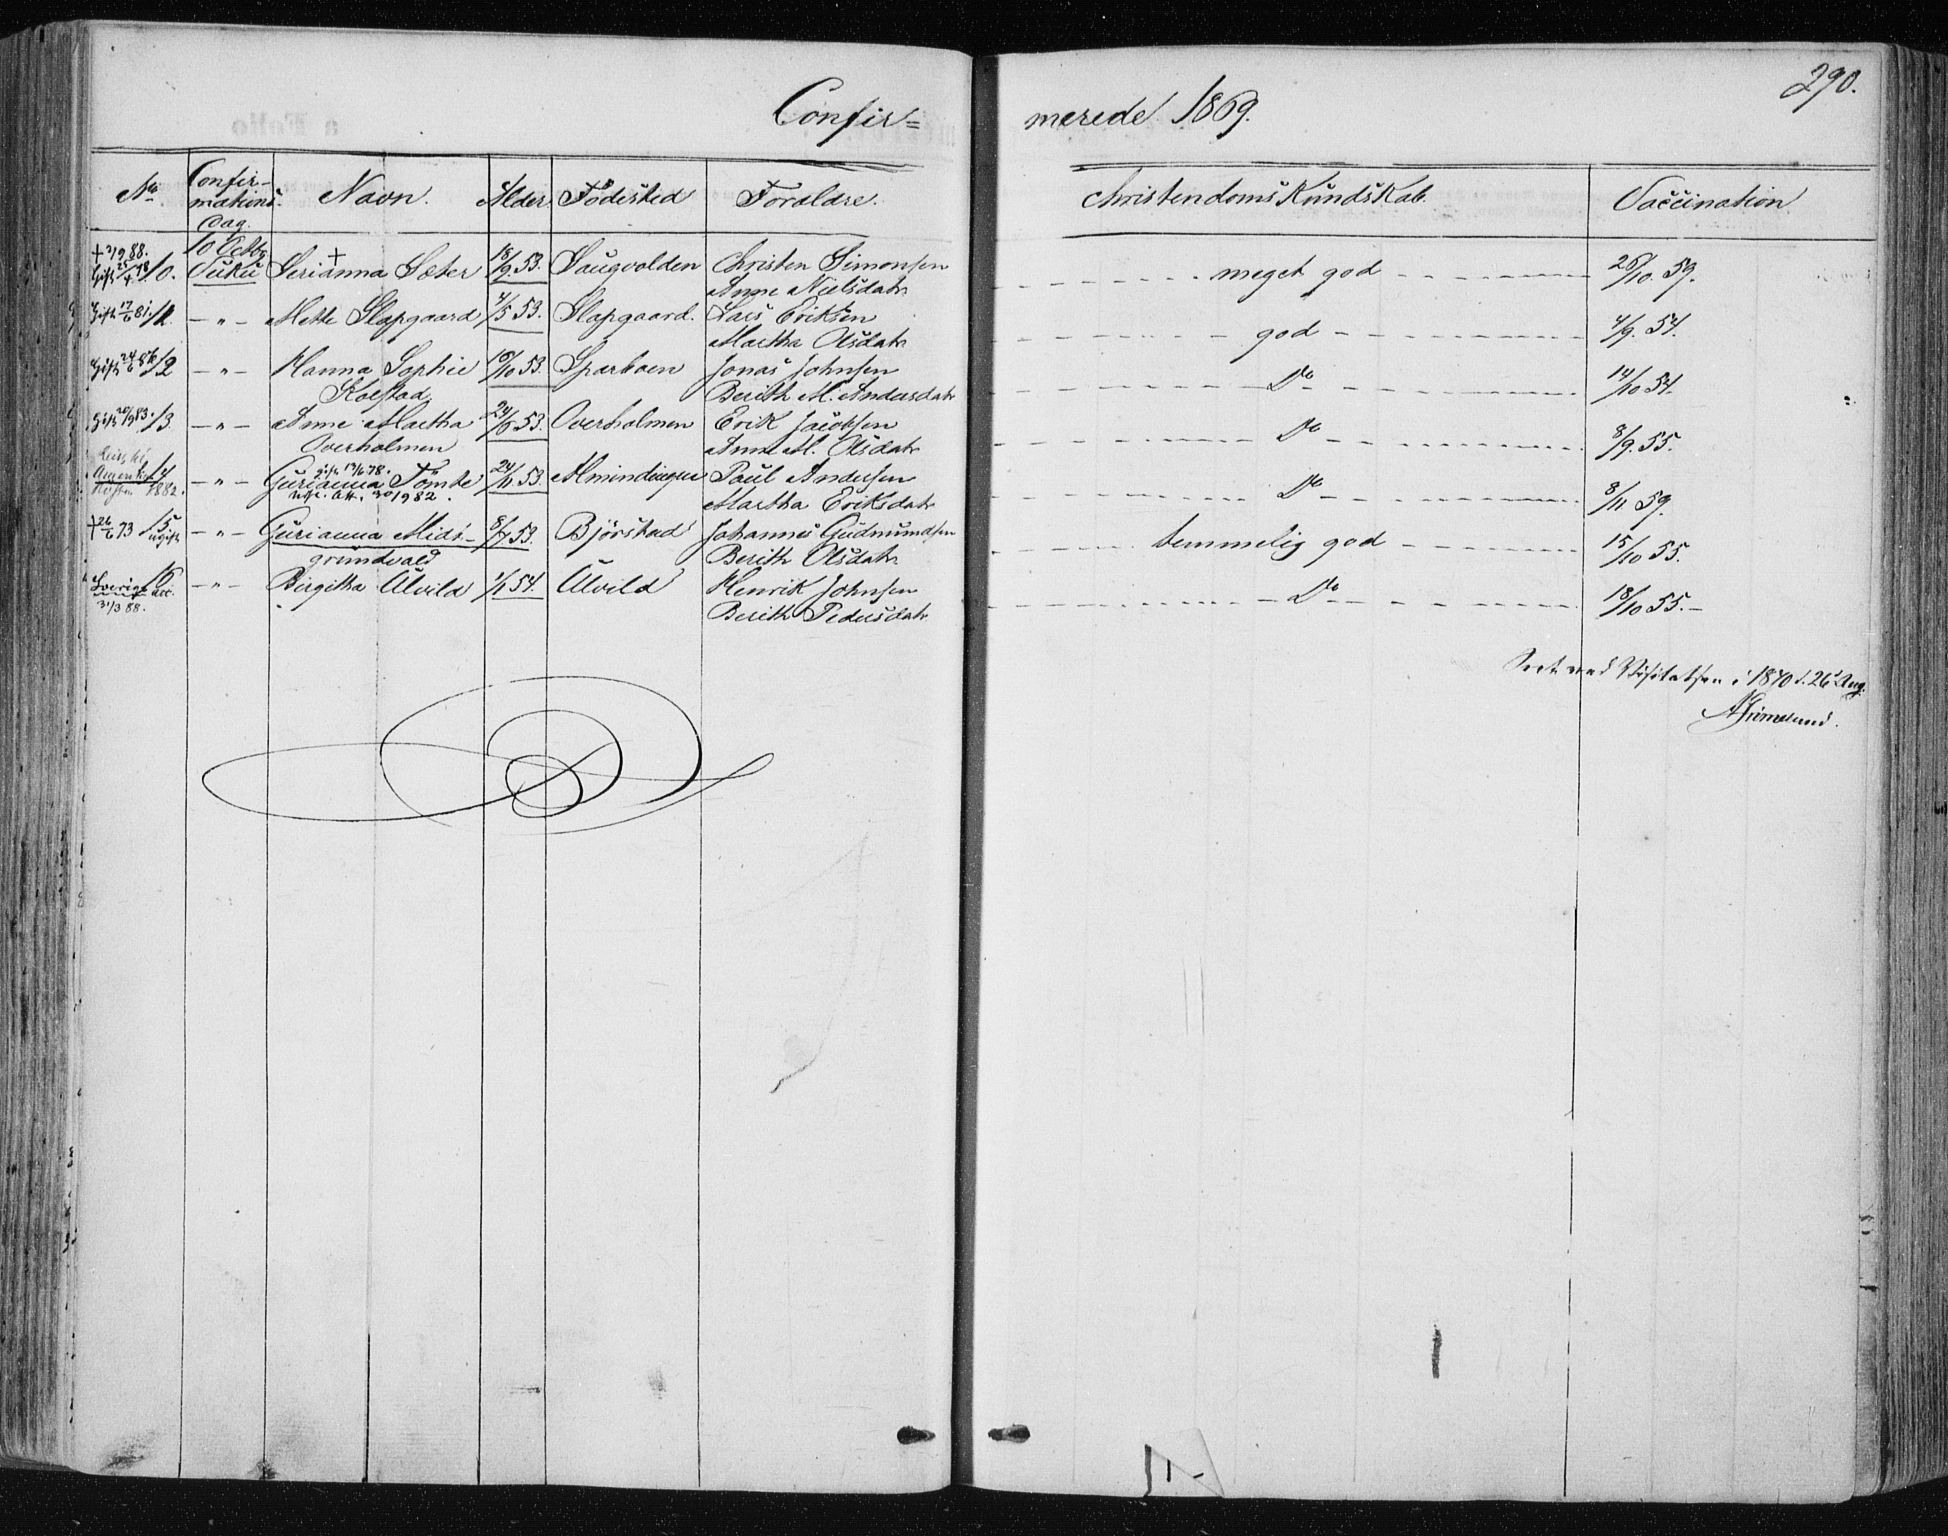 290.
Confir= merede 1869.
No Confir-mations Dag. Navn. Alder. Födested Foraldre. Christendoms Kundskab. Vaccination
+ 2/9 88. 10 Octbr
Gift 25/4 78 10. Serianna Sæter 18/9 53. Saugvolden Christen Simonsen meget god 26/10 59.
Anne Nielsdatr
Gift 17/6 81. 11. -"- Mette Slapgaard 4/5 53. Slapgaard. Lars Eriksen god 4/9. 54.
Martha Olsdatr
Gift 24/6 12 -"- Hanna Sophie 10/10 53. Sparboen Jonas Johnsen Do 14/10 54.
Kolstad Berith M. Andersdatr
Gift 20/9 83. 13. -"- Anne Martha 53. Overholmen Erik Jacobsen Do 8/9. 55.
Overholmen Anne M. Olsdatr
gift 13/6 78.
14 -"- Gurianna Tömte 24/11 53. Almindingen Paul Andersen Do 8/11 59.
1882. Utfl. Att. 30/9 82. Martha Eriksdatr
+ 26/6 73 15 ugift -"- Gurianna Mids- 8/7 53. Björstad Johannes Gudmundsen temmelig god 15/10 55.
grundvald Berith Olsdatr
Sverige 16 -"- Birgitha Ulvild 1/1 54. Ulvild Henrik Johnsen Do 18/10 55.-
31/3 88. Berith Pedersdatr
Seet ved Visitatsen i 1870 d. 26 Aug.
Grimelund.